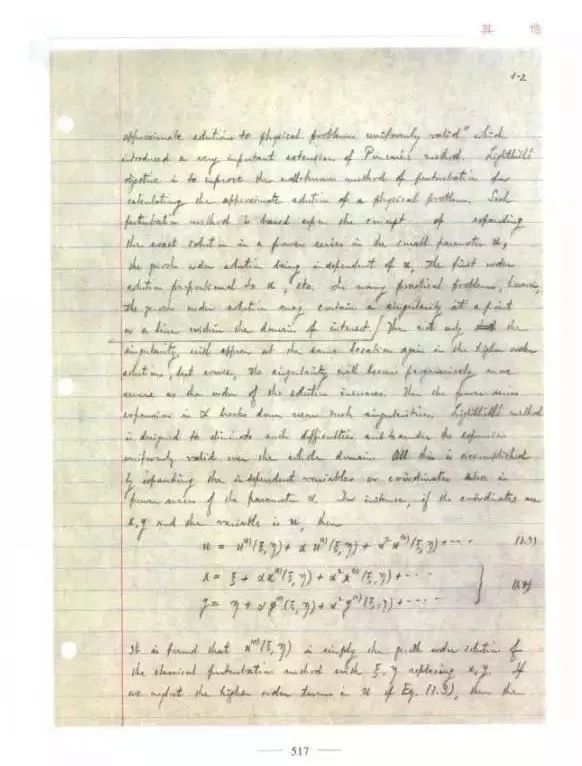 其 他
1-2
approximate solutions to physical problems uniformly valid" which
introduced a very important extension of Poincaré's method. Lighthill's
objective is to improve the well-known method of perturbation for
calculating the approximate solution of a physical problem. Such
perturbation method is based upon the concept of expanding
the exact solution in a power series in the small parameter α,
the zeroth order solution being independent of α, the first order
solution proportional to α, etc. In many practical problems, however,
the zeroth order solution may contain a singularity at a point
or a line within the domain of interest. Then not only the
singularity will appear at the same location again in the higher order
solution, but worse, the singularity will become progressively more
severe as the order of the solution increases. Thus the power series
expansion in α breaks down near such singularities. Lighthill's method
is designed to eliminate such difficulties and to render the expansion
uniformly valid over the whole domain. All this is accomplished
by expanding the independent variables or coordinates also in
power series of the parameter α. For instance, if the coordinates are
x, y and the variable is u, then
u = u⁽⁰⁾(ξ, η) + α u⁽¹⁾(ξ, η) + α² u⁽²⁾(ξ, η) + ···· (1.3)
x = ξ + α x⁽¹⁾(ξ, η) + α² x⁽²⁾(ξ, η) + ····
y = η + α y⁽¹⁾(ξ, η) + α² y⁽²⁾(ξ, η) + ····
It is found that u⁽⁰⁾(ξ, η) is simply the zeroth order solution of
the classical perturbation method with ξ, η replacing x, y. If
we neglect the higher order terms in u of Eq. (1.3), then the
517